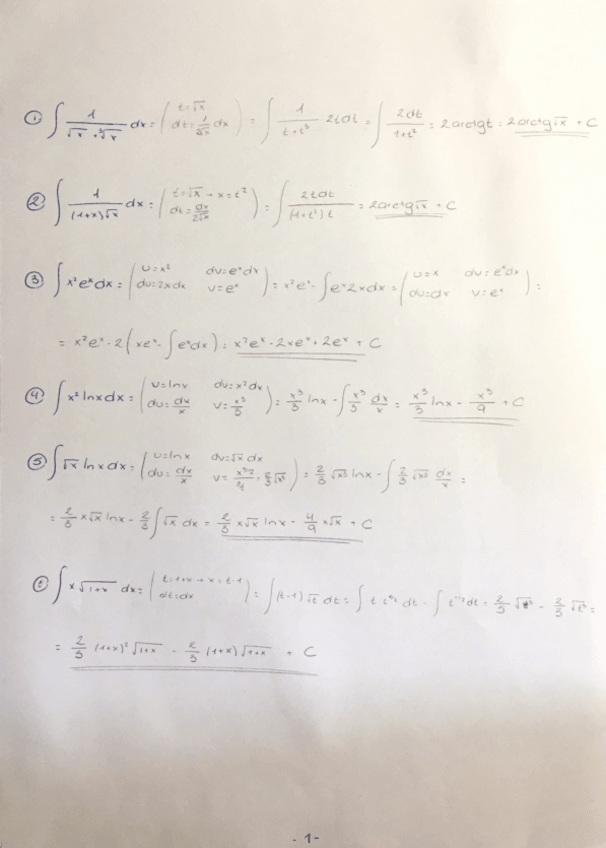 ① ∫ 1/(√x + ³√x) dx = ( t = √x  dt = 1/(2√x) dx ) = ∫ 1/(t + t³) 2t dt = ∫ 2dt/(1+t²) = 2arctg t = 2arctg √x + C
② ∫ 1/((1+x)√x) dx = ( t = √x → x = t²  dt = dx/(2√x) ) = ∫ 2t dt/((1+t²) t) = 2arctg √x + C
③ ∫ x²eˣ dx = ( u = x²  dv = eˣ dx  du = 2x dx  v = eˣ ) = x²eˣ - ∫ eˣ 2x dx = ( u = x  dv = eˣ dx  du = dx  v = eˣ ) =
= x²eˣ - 2 ( xeˣ - ∫ eˣ dx ) = x²eˣ - 2xeˣ + 2eˣ + C
④ ∫ x² ln x dx = ( u = ln x  dv = x² dx  du = dx/x  v = x³/3 ) = x³/3 ln x - ∫ x³/3 dx/x = x³/3 ln x - x³/9 + C
⑤ ∫ √x ln x dx = ( u = ln x  dv = √x dx  du = dx/x  v = 2/3 √x³ ) = 2/3 √x³ ln x - ∫ 2/3 √x³ dx/x =
= 2/3 x√x ln x - 2/3 ∫ √x dx = 2/3 x√x ln x - 4/9 x√x + C
∫ x √(1+x) dx = ( t = 1+x → x = t-1  dt = dx ) = ∫ (t-1) √t dt = ∫ t dt - ∫ dt = 2/5 - 2/3 √t³ =
= 2/5 (1+x)² √(1+x) - 2/3 (1+x) √(1+x) + C
- 1 -